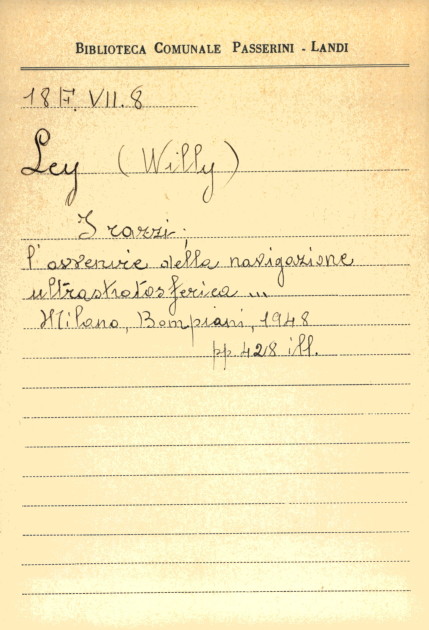 BIBLIOTECA COMUNALE PASSERINI - LANDI
18 F. VII. 8
Ley (Willy)
I razzi:
l'avvenire della navigazione
ultrastratosferica ...
Milano, Bompiani, 1948
pp. 428 ill.